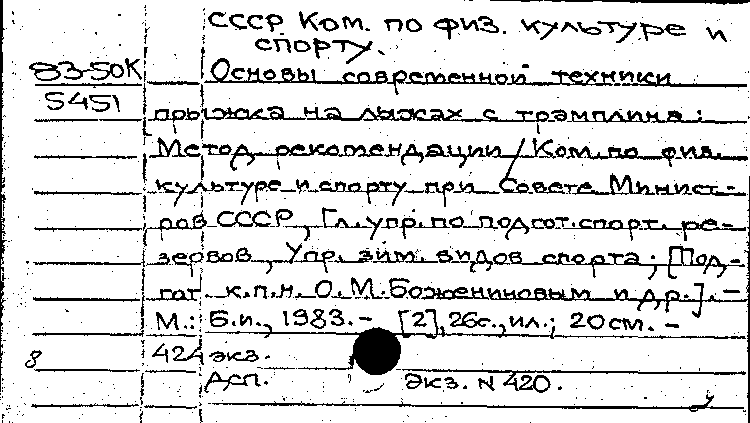 СССР Ком. по физ. культуре и
спорту.
83-50К
5451
Основы современной техники
прыжка на лыжах с трамплина:
Метод. рекомендации / Ком. по физ.
культуре и спорту при Совете Минист-
ров СССР, Гл. упр. по подгот. спорт. ре-
зервов, Упр. зим. видов спорта; [Под-
гот. к.п.н. О.М. Божениновым и др.]. -
М.: Б.и., 1983. - [2], 26с., ил.; 20см. -
8
424 экз.
ДСП.
Экз. N 420.